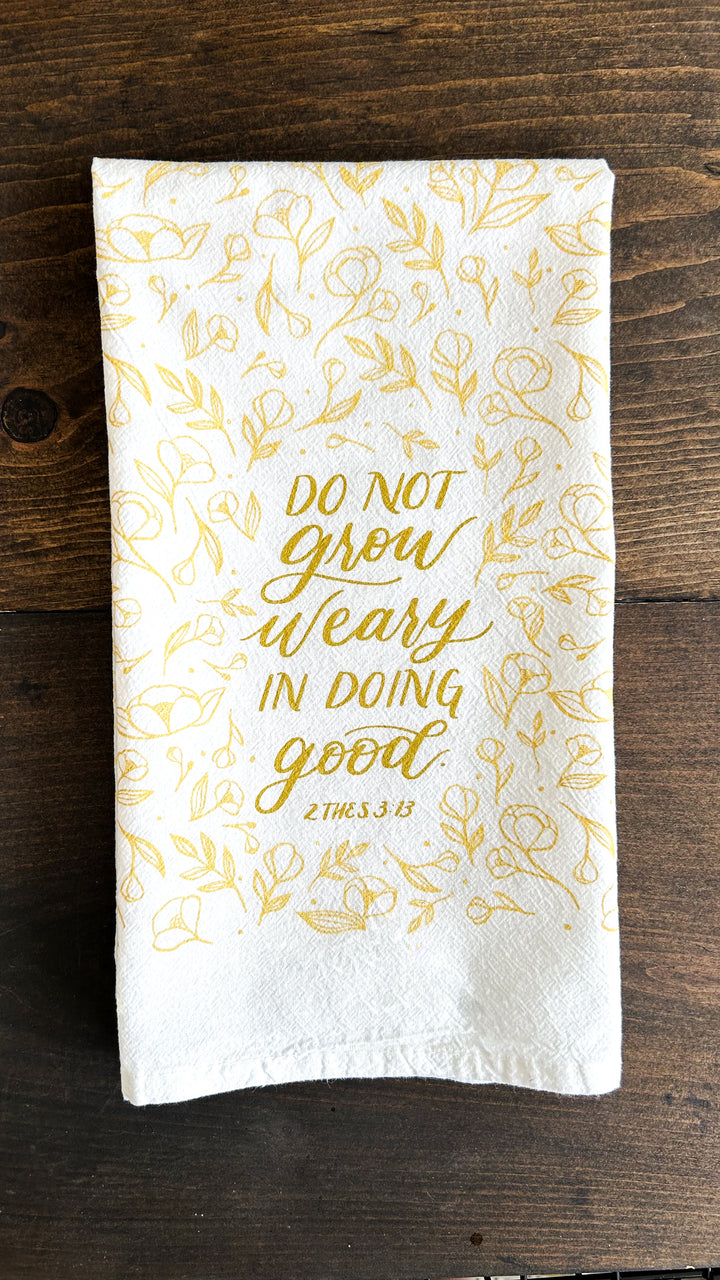 DO NOT
grow
weary
IN DOING
good.
2 THES 3:13